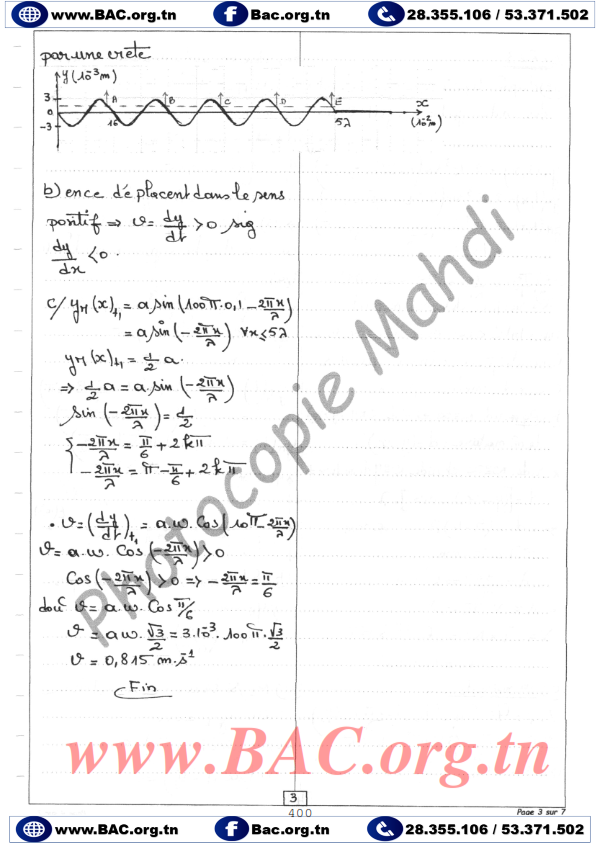 www.BAC.org.tn Bac.org.tn 28.355.106 / 53.371.502
par une crête
y(10⁻³m)
3 A B C D E x
0
-3 16 5λ (10⁻²m)
b) ence déplacent dans le sens
positif ⇒ v = dy/dt > 0 sig
dy/dx < 0.
c/ yM(x)t1 = a sin(100π.0,1 - 2πx/λ)
= a sin(-2πx/λ) ∀x≤5λ
yM(x)t1 = 1/2 a.
⇒ 1/2 a = a.sin(-2πx/λ)
sin(-2πx/λ) = 1/2
{ -2πx/λ = π/6 + 2kπ
-2πx/λ = π - π/6 + 2kπ
• v = (dy/dt)t1 = a.w.Cos(10π - 2πx/λ)
v = a.w. Cos(-2πx/λ) > 0
Cos(-2πx/λ) > 0 ⇒ -2πx/λ = π/6
donc v = a.w. Cos π/6
v = a w. √3/2 = 3.10⁻³. 100π. √3/2
v = 0,815 m.s⁻¹
Fin
Photocopie Mahdi
www.BAC.org.tn
3
400
Page 3 sur 7
www.BAC.org.tn Bac.org.tn 28.355.106 / 53.371.502